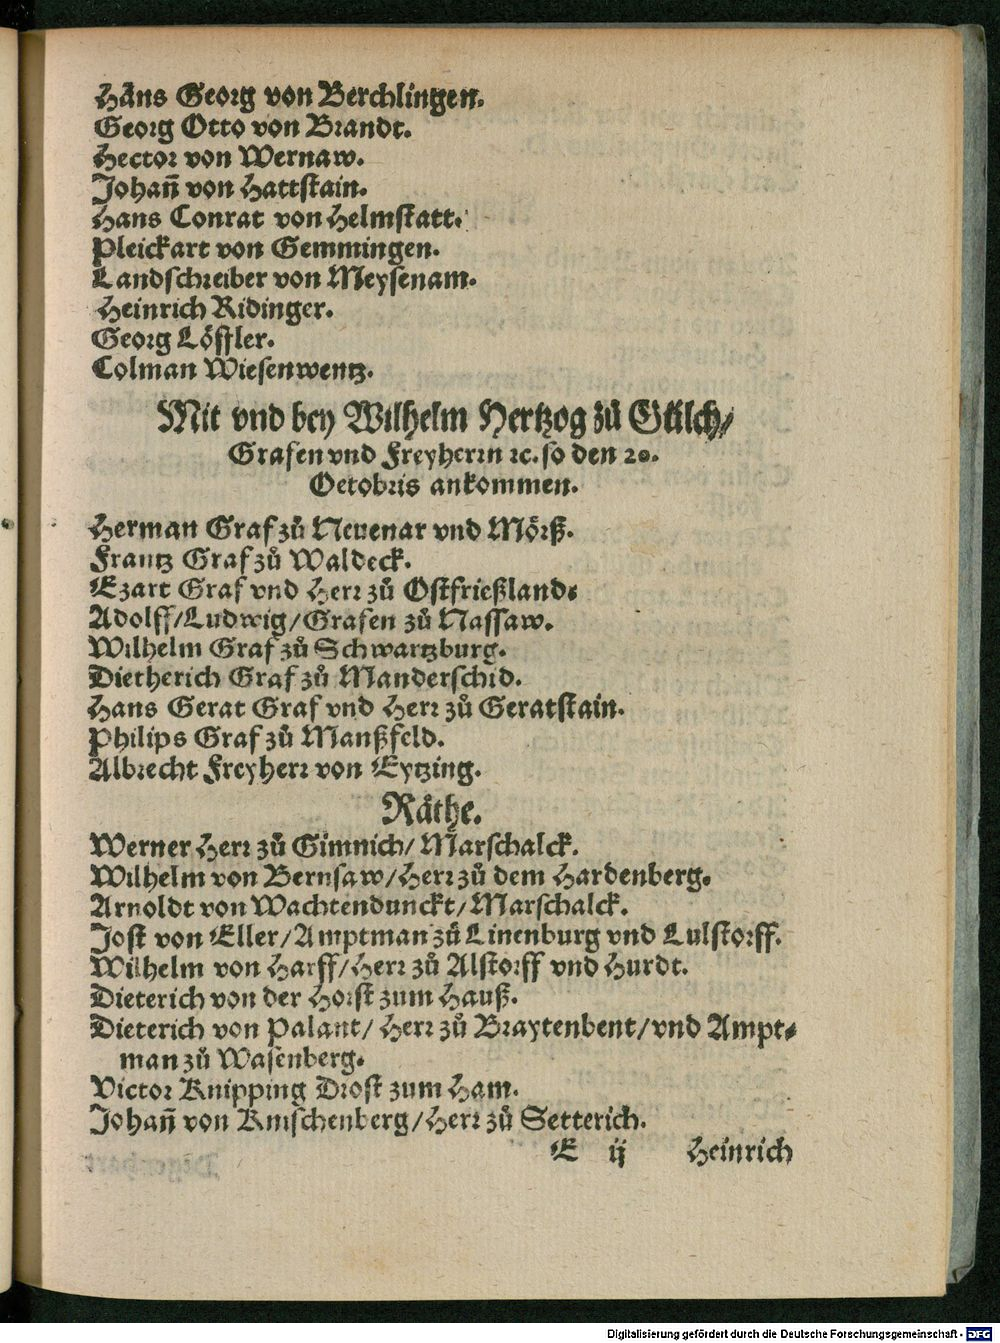 Hãns Georg von Berchlingen.
Georg Otto von Brandt.
Hector von Wernaw.
Johañ von Hattstain.
Hans Conrat von Helmstatt.
Pleickart von Gemmingen.
Landschreiber von Meysenam.
Heinrich Ridinger.
Georg Löffler.
Colman Wiesenwentz.
Mit vnd bey Wilhelm Hertzog zů Gülch/
Grafen vnd Freyherrn ꝛc. so den 20.
Octobris ankommen.
Herman Graf zů Neuenar vnd Mörß.
Frantz Graf zů Waldeck.
Ezart Graf vnd Herr zů Ostfrießland.
Adolff/Ludwig/Grafen zů Nassaw.
Wilhelm Graf zů Schwartzburg.
Dietherich Graf zů Manderschid.
Hans Gerat Graf vnd Herr zů Geratstain.
Philips Graf zů Manßfeld.
Albrecht Freyherr von Eytzing.
Räthe.
Werner Herr zů Gimnich/Marschalck.
Wilhelm von Bernsaw/Herr zů dem Hardenberg.
Arnoldt von Wachtendunckt/Marschalck.
Jost von Eller/Amptman zů Linenburg vnd Lulstorff.
Wilhelm von Harff/Herr zů Alstorff vnd Hurdt.
Dieterich von der Horst zum Hauß.
Dieterich von Palant/Herr zů Braytenbent/vnd Ampt-
man zů Wasenberg.
Victor Knipping Drost zum Ham.
Johañ von Knischenberg/Herr zů Setterich.
E ij Heinrich
Digitalisierung gefördert durch die Deutsche Forschungsgemeinschaft - DFG